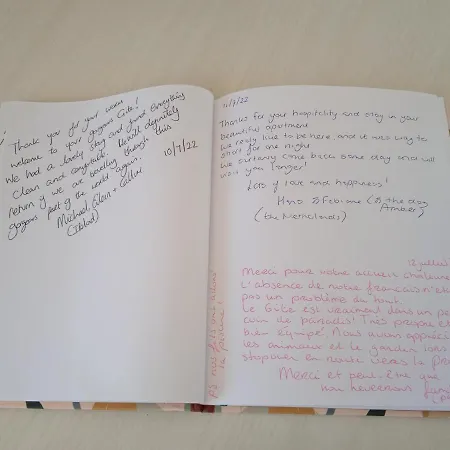 Thank you for your warm
welcome to your gorgeous Gite!
We had a lovely stay and found everything
clean and comfortable. We will definitely
return if we are travelling through this
gorgeous part of the world again.
10/7/22
Michael, Eileen +
(Ireland)
11/7/22
Thanks for your hospitality and stay in your
beautiful apartment
We really like to be here, and it was way to
short for one night
We certainly come back some day and will
stay longer!
Lots of love and happiness!
& Fabienne (& the dog
Amber)
(the Netherlands)
juillet
Merci pour votre accueil
L'absence de notre français n'est
pas un problème du tout.
Le Gîte est vraiment dans un pe
coin de paradis! Très propre et
bien équipé. Nous avons apprécié
les animaux et le jardin lors
stopover en route vers la Pro
Merci et peut-être que
nous